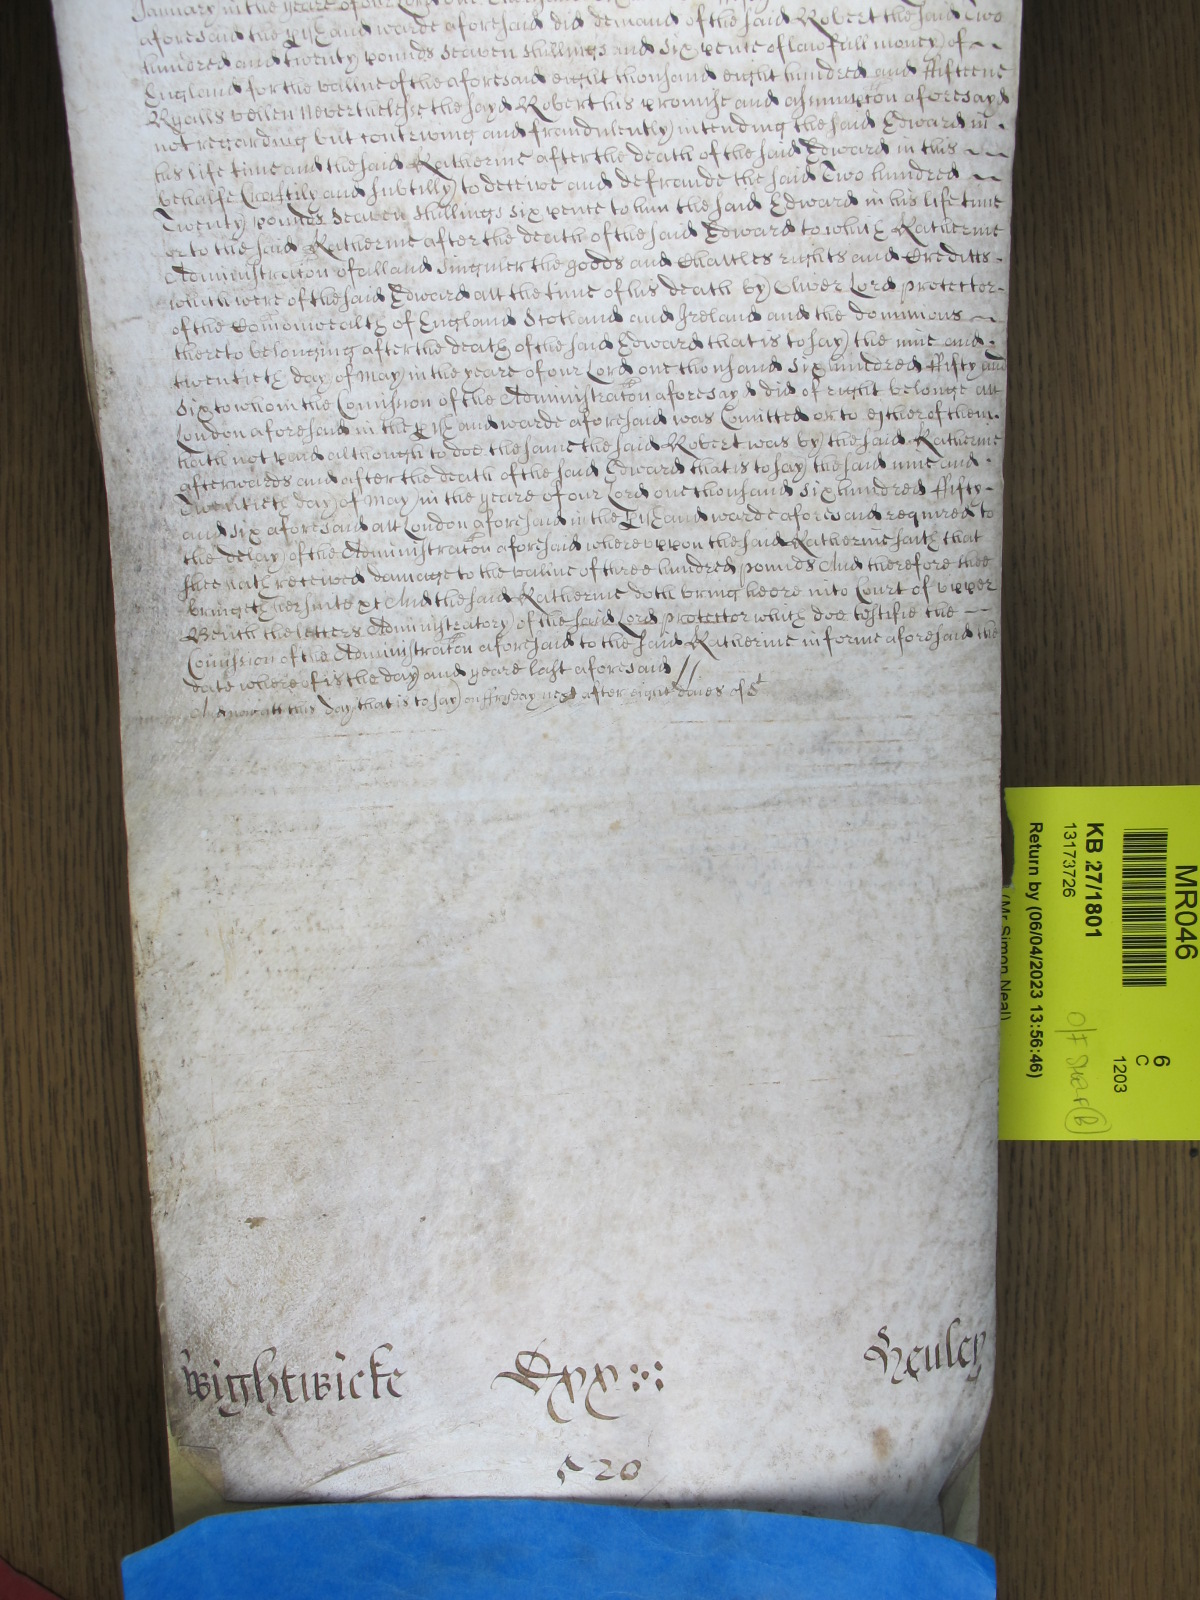 January in the yeare of our Lord one thousand
aforesaid the p'ish and warde aforesaid did demand of the said Robert the said Two
hundred and twenty pounds Seaven shillings and six pence of lawfull money of
England for the value of the aforesaid eight thousand eight hundred and fifteene
Ryalls vellen Neverthelesse the sayd Robert his promise and assumpcon aforesayd
not regarding but contriving and fraudulently intending the said Edward in
his life time and the said Katherine after the death of the said Edward in this
behalfe Craftily and Subtilly to deceive and defraude the said Two hundred
Twenty pounds Seaven shillings six pence to him the said Edward in his life time
or to the said Katherine after the death of the said Edward to which Katherine
Administracon of all and singuler the goods and Chattles rights and Creditts
which were of the said Edward att the time of his death by Oliver Lord protector
of the Comonwealth of England Scotland and Ireland and the dominions
thereto belonging after the death of the said Edward that is to say the nine and
twentieth day of May in the yeare of our Lord one thousand six hundred fifty and
Six to whom the Comission of the Administracon aforesayd did of right belonge att
London aforesaid in the p'ish and warde aforesaid was Comitted or to either of them
hath not paid although to doe the same the said Robert was by the said Katherine
afterwards and after the death of the said Edward that is to say the said nine and
Twentieth day of May in the yeare of our Lord one thousand six hundred fifty
and six aforesaid att London aforesaid in the p'ish and warde aforesaid required to
the delay of the Administracon aforesaid whereuppon the said Katherine saith that
shee hath received damage to the value of three hundred pounds And therefore shee
bringeth her suite &c And the said Katherine doth bring heere into Court of upper
Bench the letters Administratory of the said Lord protector which doe testifie the
Comission of the Administracon aforesaid to the said Katherine in forme aforesaid the
date whereof is the day and yeare last aforesaid //
And now att this day that is to say on fryday next after eight daies of St
Wightwicke Dxx Henley
520
MR046
6
C
1203
KB 27/1801
13173726
O/F Shelf (B)
Return by (06/04/2023 13:56:46)
(Mr Simon Neal)